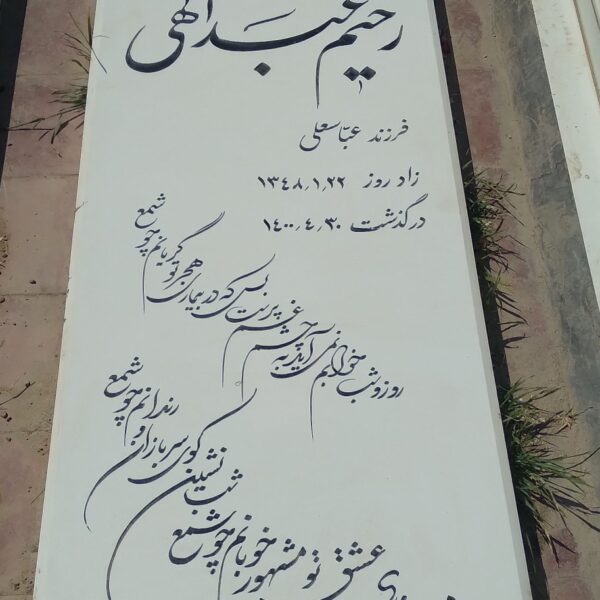 رحیم عبدالهی
فرزند عباسعلی
زاد روز ۱۳۴۸٫۱٫۲۲
درگذشت ۱۴۰۰٫۴٫۳۰
روز و شب خوابم نمی‌آید به چشم غم پرست
بس که در بیماری هجر تو گریانم چو شمع
عشق تو مشهور خوبانم چو شمع
شب نشین کوی سربازان و رندانم چو شمع